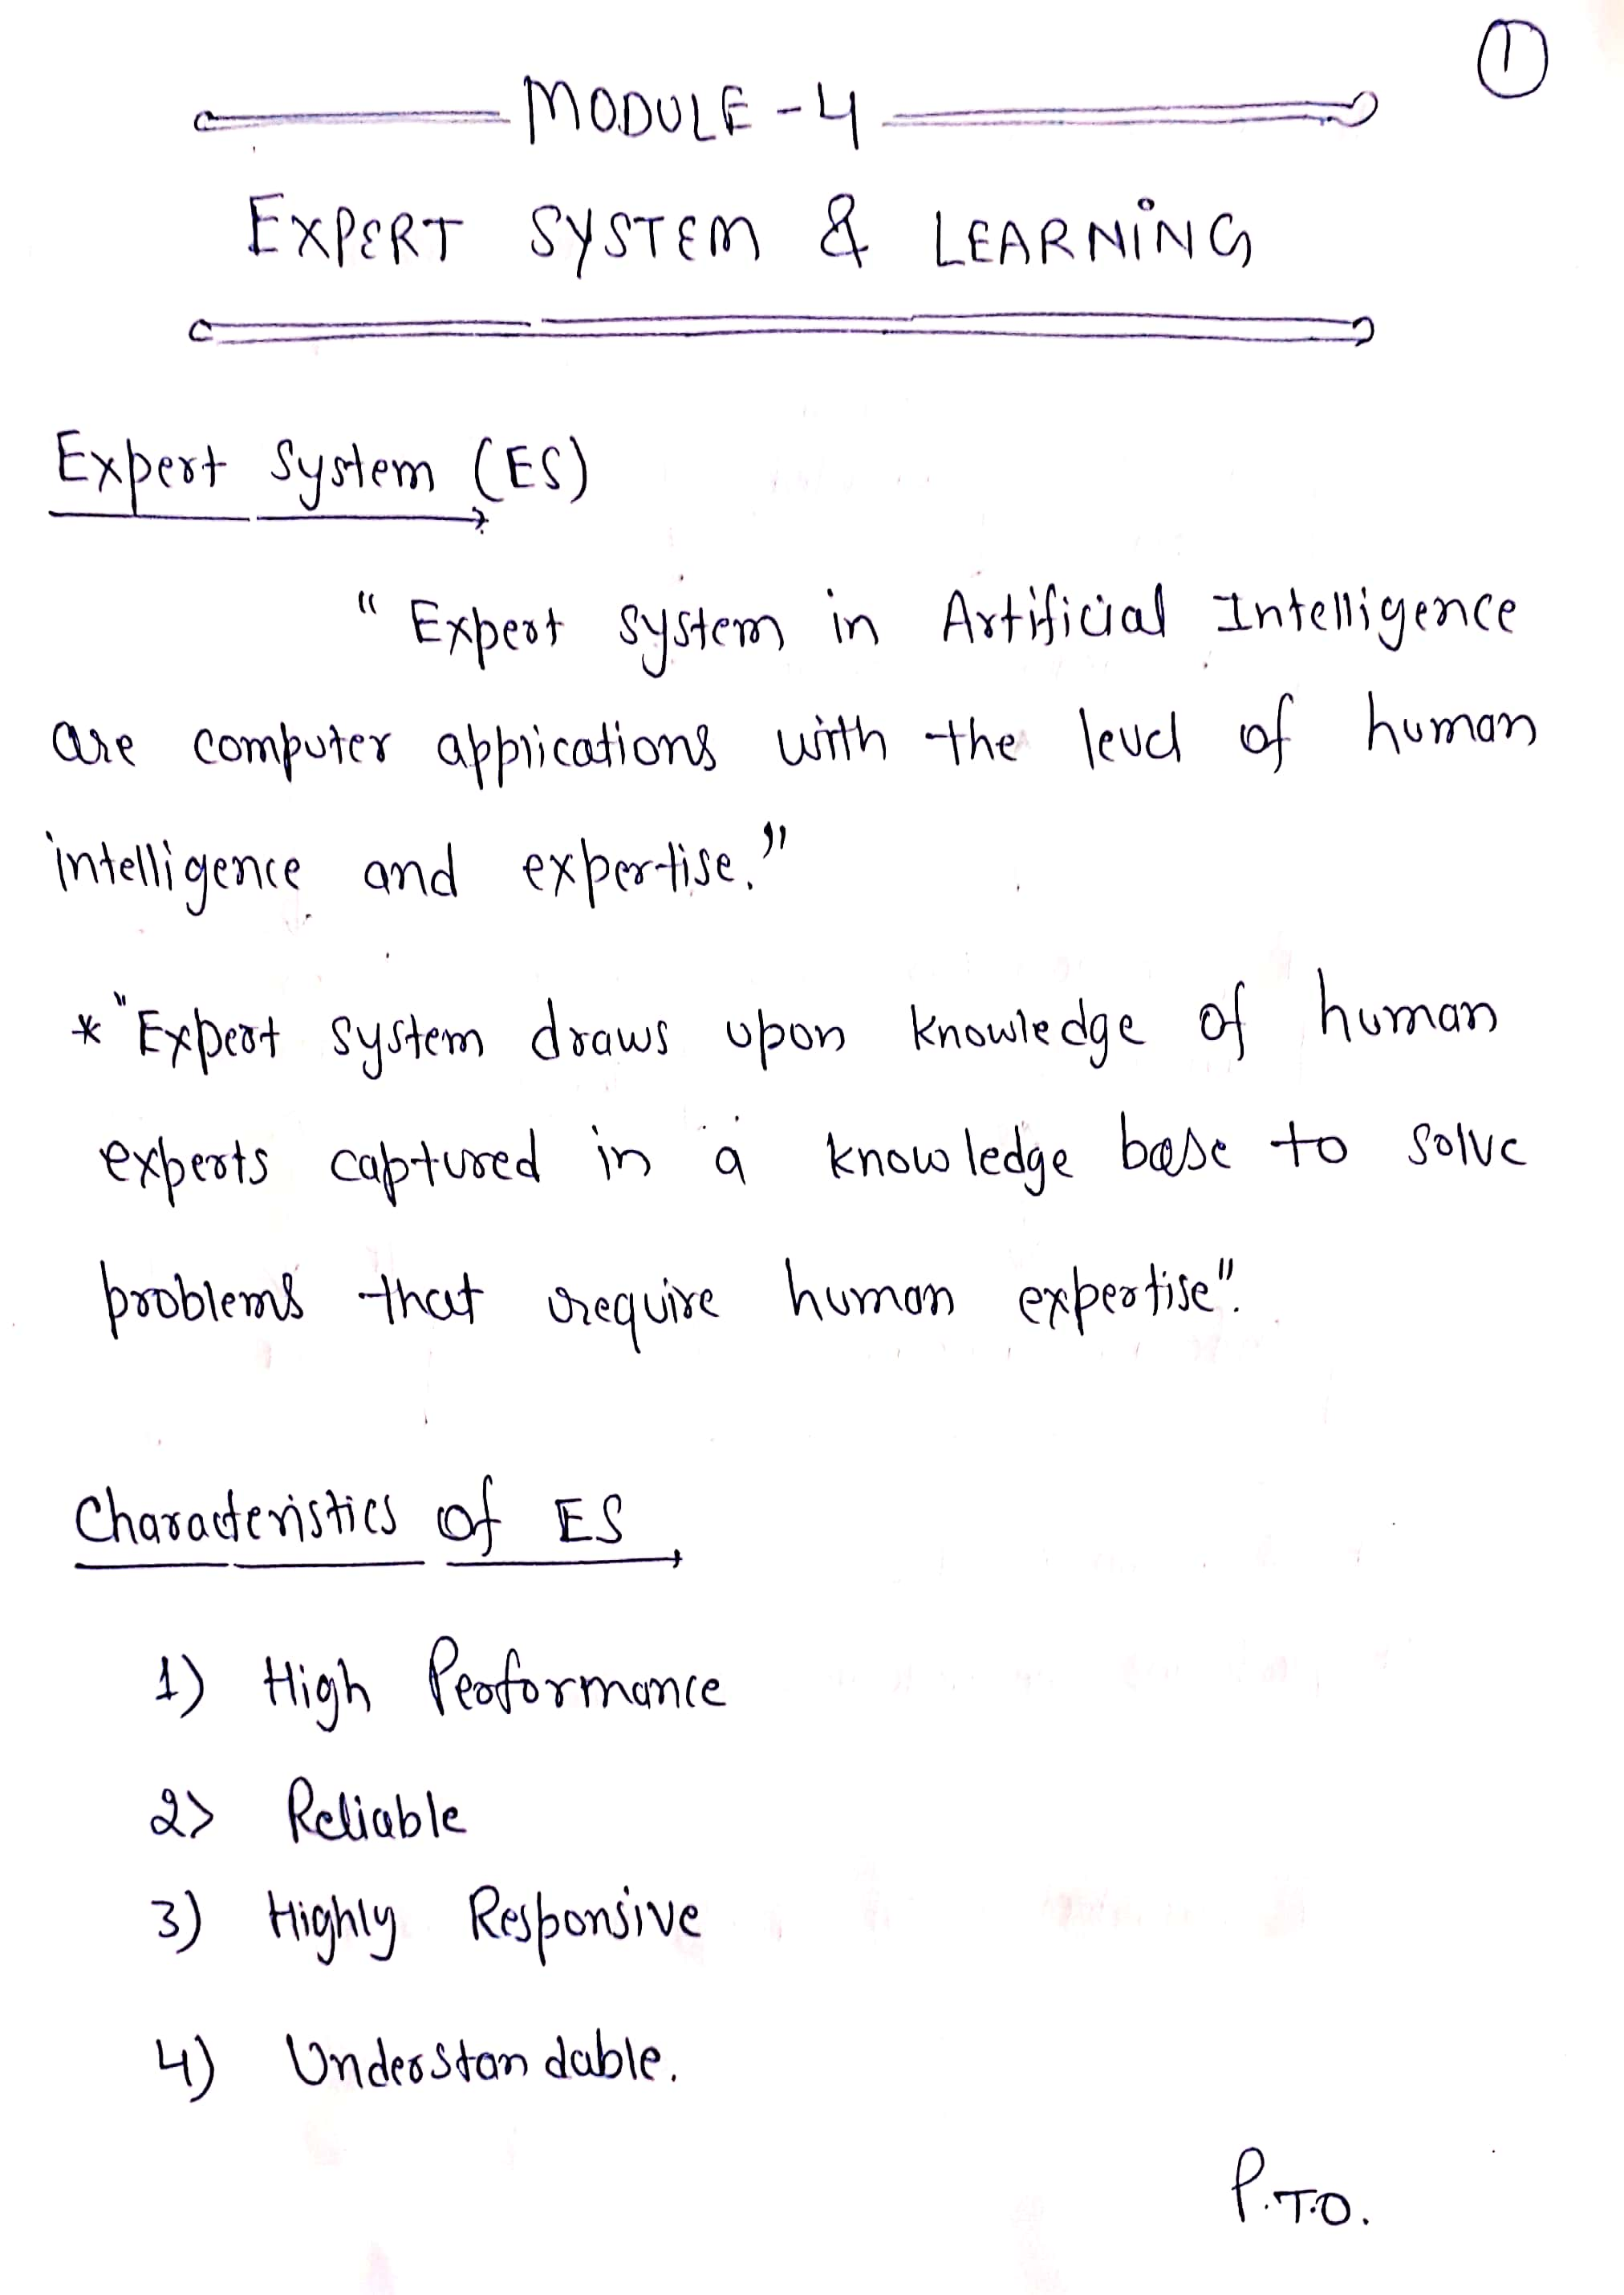 1
MODULE - 4
EXPERT SYSTEM & LEARNING
Expert System (ES)
" Expert system in Artificial Intelligence
are computer applications with the level of human
intelligence and expertise."
* "Expert system draws upon knowledge of human
experts captured in a knowledge base to solve
problems that require human expertise".
Characteristics of ES
1) High Performance
2) Reliable
3) Highly Responsive
4) Understandable.
P.T.O.